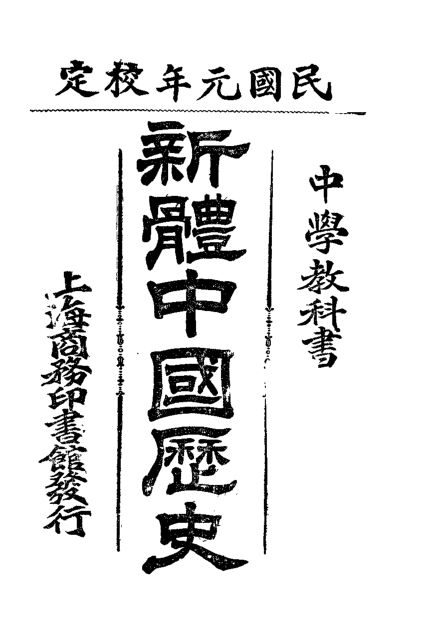 民國元年校定
中學教科書
新體中國歷史
上海商務印書館發行